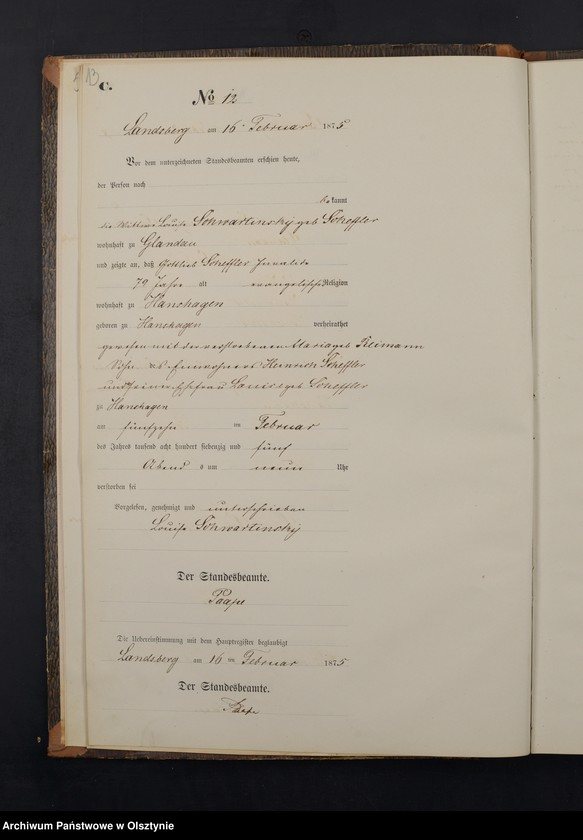 13
C.
No 12
Landsberg am 16. Februar 1875
Vor dem unterzeichneten Standesbeamten erschien heute,
der Person nach
bekannt
die Wittwe Louise Schwartinsky geb Scheffler
wohnhaft zu Glandau
und zeigte an, daß Gottlieb Scheffler Invalide
79 Jahre alt evangelische Religion
wohnhaft zu Hanshagen
geboren zu Hanshagen verheirathet
gewesen mit der verstorbenen Maria geb Reimann
Sohn des Einwohners Heinrich Scheffler
und seiner Ehefrau Louise geb Scheffler
zu Hanshagen
am fünfzehn ten Februar
des Jahres tausend acht hundert siebenzig und fünf
Abend s um neun Uhr
verstorben sei
Vorgelesen, genehmigt und unterschrieben
Louise Schwartinsky
Der Standesbeamte.
Die Uebereinstimmung mit dem Hauptregister beglaubigt
Landsberg am 16 ten Februar 1875
Der Standesbeamte.
Archiwum Państwowe w Olsztynie
szukajwarchiwach.gov.pl